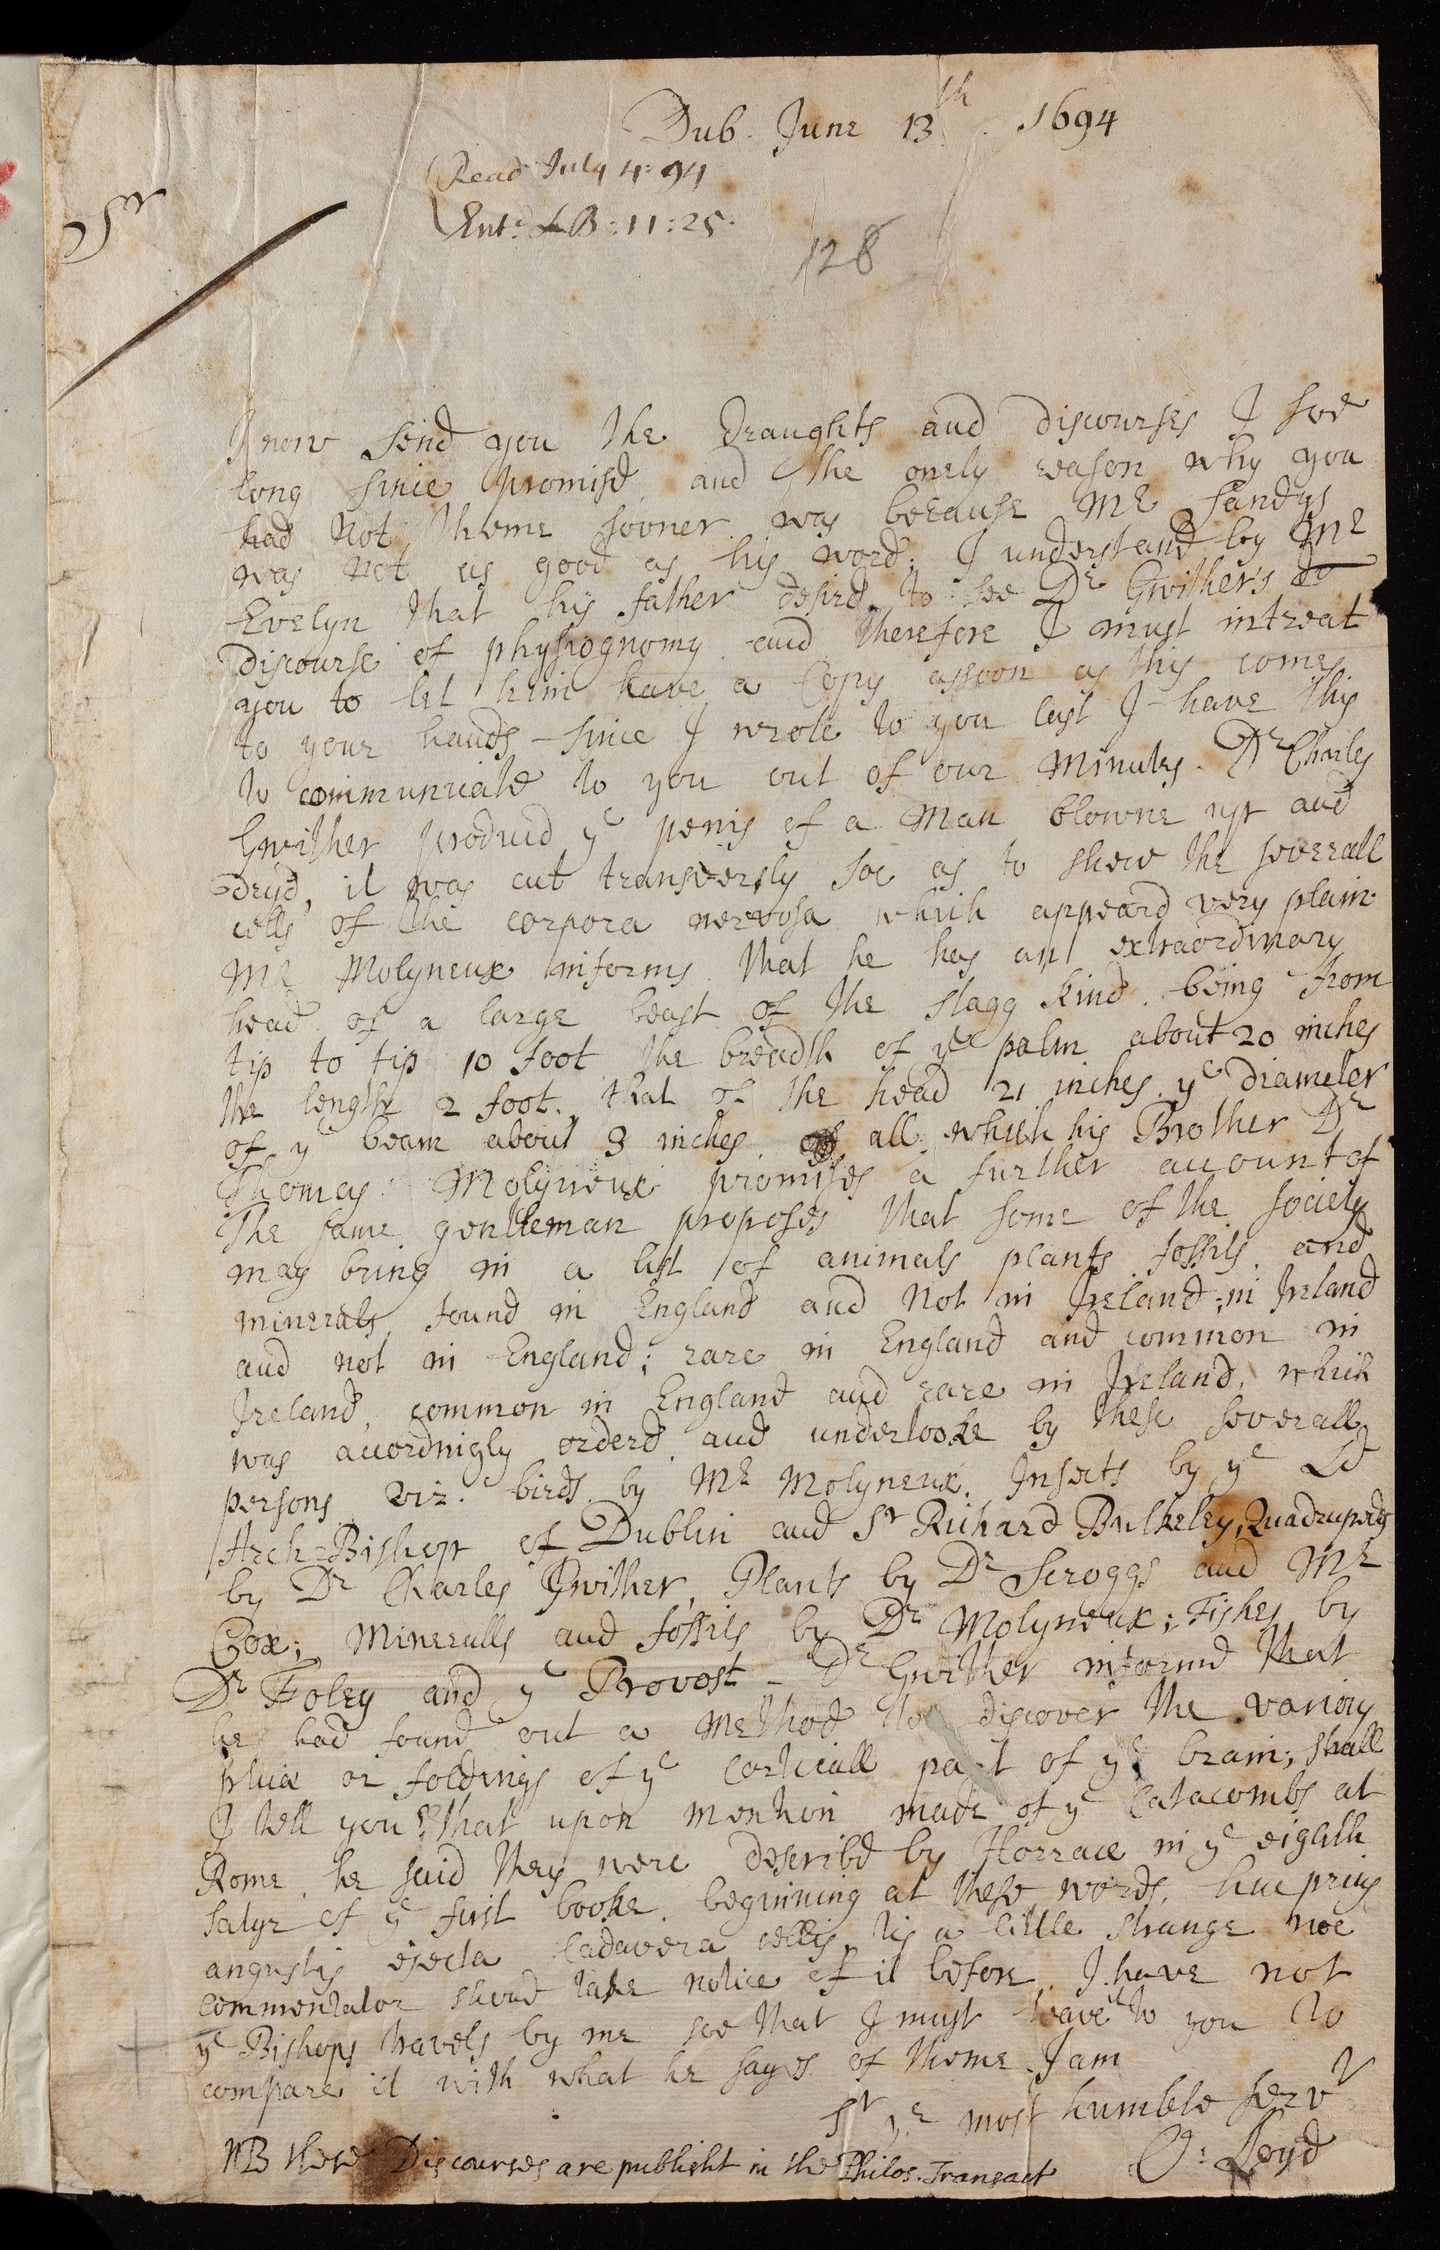 Dub. June 13th. 1694
Read July 4: 94
Entd. LB: 11: 25.
128
Sr
I now send you the draughts and discourses I soe
long since promisd, and the onely reason why you
had not theme sooner was because Mr Sandys
was not as good as his word; I understand by Mr
Evelyn that his father desird to see Dr Gwither's
discourse of physiognomy and therefore I must intreat
you to let him have a Copy assoon as this comes
to your hands – since I wrote to you last I have this
to communicate to you out of our Minutes. Dr Charles
Gwither producd ye penis of a Man blowne upp and
dryd, it was cut transversly soe as to shew the severall
cells of the corpora nervosa which appeard very plain.
Mr Molyneux informs that he has an extraordinary
head of a large beast of the stagg kind. being from
tip to tip 10 foot the breadth of ye palm about 20 inches
the length 2 foot. that of the head 21 inches ye diameter
of ye beam about 3 inches of all which his Brother Dr
Thomas Molyneux promises a further account of
The same gentleman proposes that some of the society
may bring in a list of animals plants fossils and
minerals found in England and not in Ireland; in Ireland
and not in England; rare in England and common in
Ireland, common in England and rare in Ireland, which
was accordingly orderd and undertooke by these severall
persons viz: birds by Mr Molyneux. Insects by ye Ld
Arch-Bishopp of Dublin and Sr Richard Bulkeley, Quadrupeds
by Dr Charles Gwither, Plants by Dr Scroggs and Mr
Cox; Mineralls and fossils by Dr Molyneux; Fishes by
Dr Foley and ye Provost – Dr Gwither informd that
he had found out a Method to discover the various
plicæ or foldings of ye Corticall part of ye brain; shall
I tell you Sr that upon mention made of ye Catacombs at
Rome, he said they were describd by Horrace in ye eighth
Satyr of ye first booke. beginning at these words, huc prius
angustis ejecta Cadavera cellis, tis a little strange noe
commentator shoud take notice of it before. I have not
ye Bishops travels by me soe that I must leave it to you to
compare it with what he sayes of theme. I am
Sr yr most humble servt
O: Loyd
NB these Discourses are publisht in the Philos. Transact